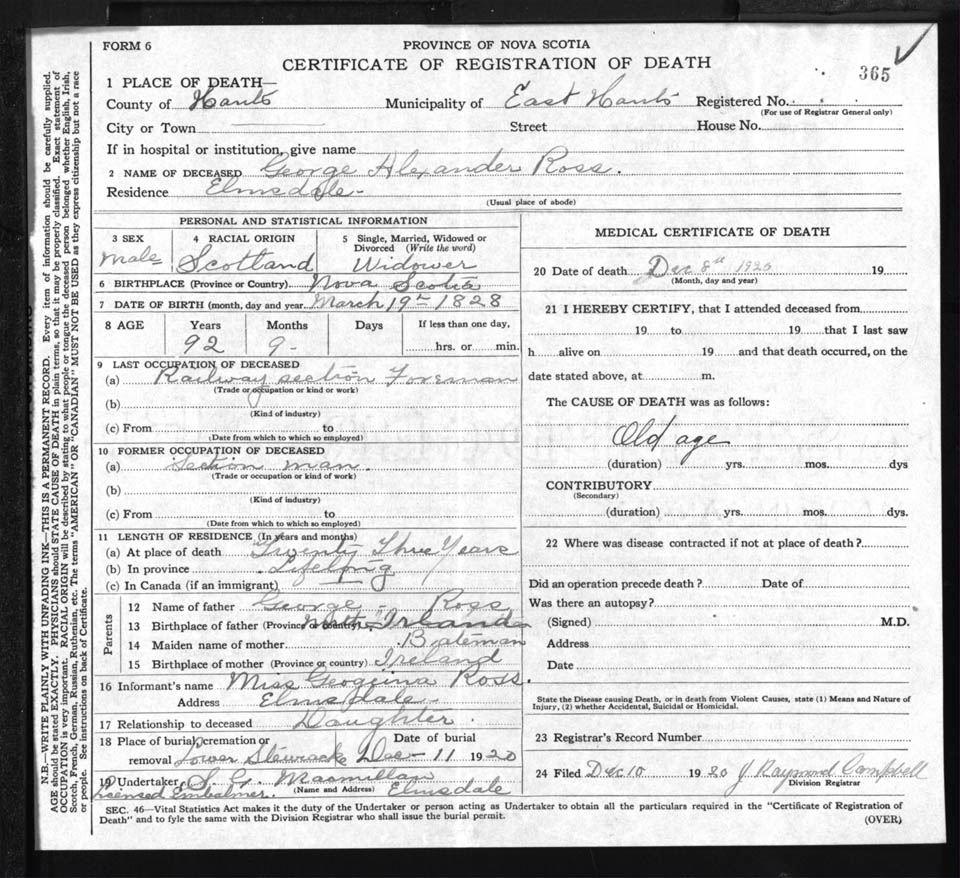 FORM 6
PROVINCE OF NOVA SCOTIA
CERTIFICATE OF REGISTRATION OF DEATH
365
1 PLACE OF DEATH—
County of Hants Municipality of East Hants Registered No.
(For use of Registrar General only)
City or Town Street House No.
If in hospital or institution, give name
2 NAME OF DECEASED George Alexander Ross.
Residence Elmsdale
(Usual place of abode)
PERSONAL AND STATISTICAL INFORMATION
3 SEX 4 RACIAL ORIGIN 5 Single, Married, Widowed or Divorced (Write the word)
Male Scotland Widower
6 BIRTHPLACE (Province or Country) Nova Scotia
7 DATE OF BIRTH (month, day and year March 19th 1828
8 AGE Years Months Days If less than one day,
92 9 - hrs. or min.
9 LAST OCCUPATION OF DECEASED
(a) Railway section Foreman
(Trade or occupation or kind or work)
(b)
(Kind of industry)
(c) From to
(Date from which to which so employed)
10 FORMER OCCUPATION OF DECEASED
(a) Section man.
(Trade or occupation or kind of work)
(b)
(Kind of industry)
(c) From to
(Date from which to which so employed)
11 LENGTH OF RESIDENCE (In years and months)
(a) At place of death Twenty Three Years
(b) In province Lifelong
(c) In Canada (if an immigrant)
Parents
12 Name of father George - Ross
13 Birthplace of father (Province or country) North Irland
14 Maiden name of mother Bateman
15 Birthplace of mother (Province or country) Ireland
16 Informant's name Miss Geogina Ross.
Address Elmsdale
17 Relationship to deceased Daughter.
18 Place of burial, cremation or Date of burial
removal Lower Stewiacke Dec 11 1920
19 Undertaker S. G. Macmillan
Licensed Embalmer. (Name and Address) Elmsdale
MEDICAL CERTIFICATE OF DEATH
20 Date of death Dec 8th 1920 19
(Month, day and year)
21 I HEREBY CERTIFY, that I attended deceased from
19 to 19 that I last saw
h alive on 19 and that death occurred, on the
date stated above, at m.
The CAUSE OF DEATH was as follows:
Old age
(duration) yrs. mos. dys
CONTRIBUTORY
(Secondary)
(duration) yrs. mos. dys.
22 Where was disease contracted if not at place of death?
Did an operation precede death? Date of
Was there an autopsy?
(Signed) M.D.
Address
Date
State the Disease causing Death, or in death from Violent Causes, state (1) Means and Nature of
Injury, (2) whether Accidental, Suicidal or Homicidal.
23 Registrar's Record Number
24 Filed Dec 10 1920 J Raymond Campbell
Division Registrar
SEC. 46—Vital Statistics Act makes it the duty of the Undertaker or person acting as Undertaker to obtain all the particulars required in the "Certificate of Registration of
Death" and to fyle the same with the Division Registrar who shall issue the burial permit.
(OVER)
N.B.—WRITE PLAINLY WITH UNFADING INK—THIS IS A PERMANENT RECORD. Every item of information should be carefully supplied.
AGE should be stated EXACTLY. PHYSICIANS should STATE CAUSE OF DEATH in plain terms, so that it may be properly classified. Exact statement of
OCCUPATION is very important. RACIAL ORIGIN will be described by stating to what people or tongue the deceased person belonged whether English, Irish,
Scotch, French, German, Russian, Ruthenian, etc. The terms "AMERICAN" OR "CANADIAN" MUST NOT BE USED as they express citizenship but not a race
or people. See instructions on back of Certificate.